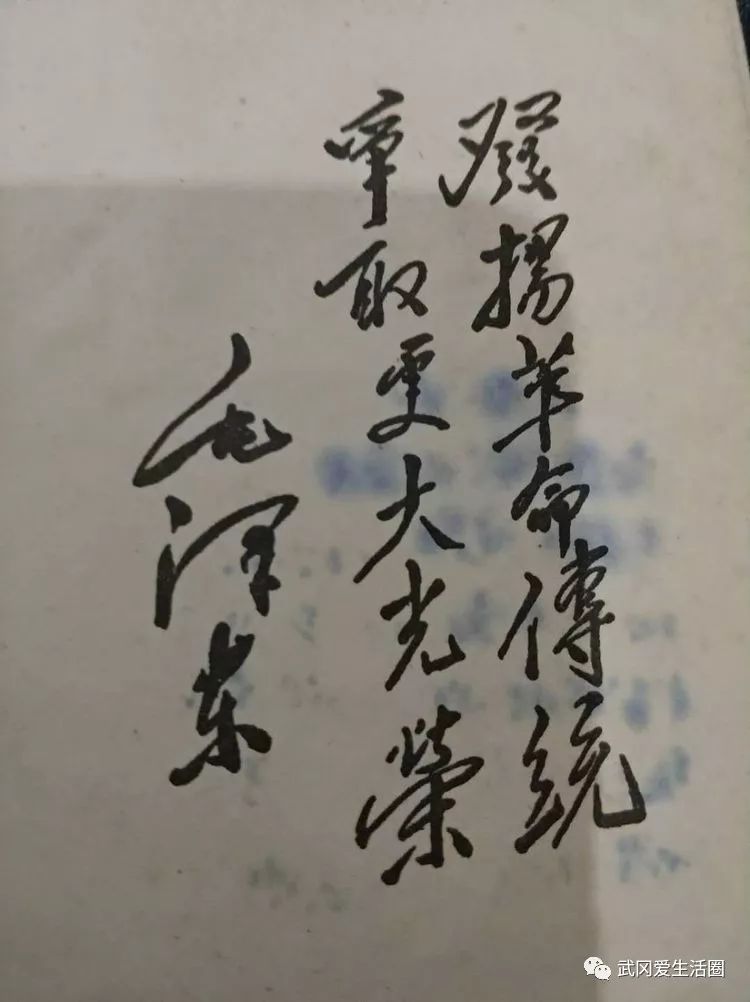 發揚革命傳統
爭取更大光榮
毛泽东
武冈爱生活圈